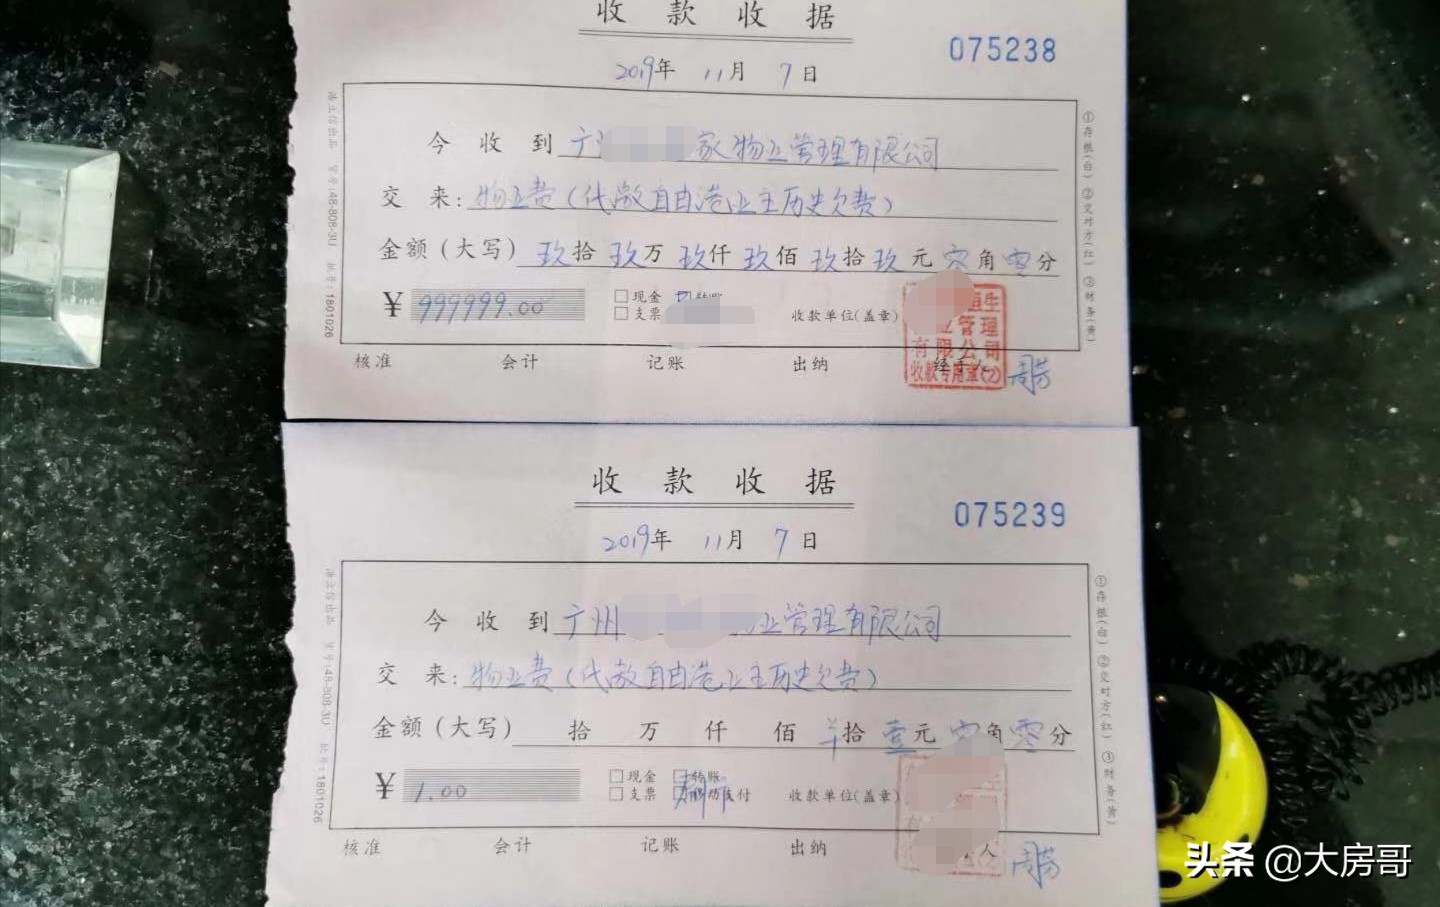 收款收据
075238
2019年 11月 7日
今收到 广 家物业管理有限公司
交来: 物业费(代缴自由港业主历史欠费)
金额(大写) 玖拾玖万玖仟玖佰玖拾玖元零角零分
¥ 999999.00 □现金 □转账 □支票 收款单位(盖章)
恒生
业管理
有限公司
收款专用章(2)
核准 会计 记账 出纳 经手人
①存根(白) ②交对方(红) ③财务(黄)
货号:48-808-3U 批号:1801026
收款收据
075239
2019年 11月 7日
今收到 广州 业管理有限公司
交来: 物业费(代缴自由港业主历史欠费)
金额(大写) 拾 万 仟 佰 拾壹元零角零分
¥ 1.00 □现金 □转账 □支票 □移动支付 收款单位(盖章)
核准 会计 记账 出纳 人
①存根(白) ②交对方(红) ③财务(黄)
货号:48-808-3U 批号:1801026
头条 @大房哥